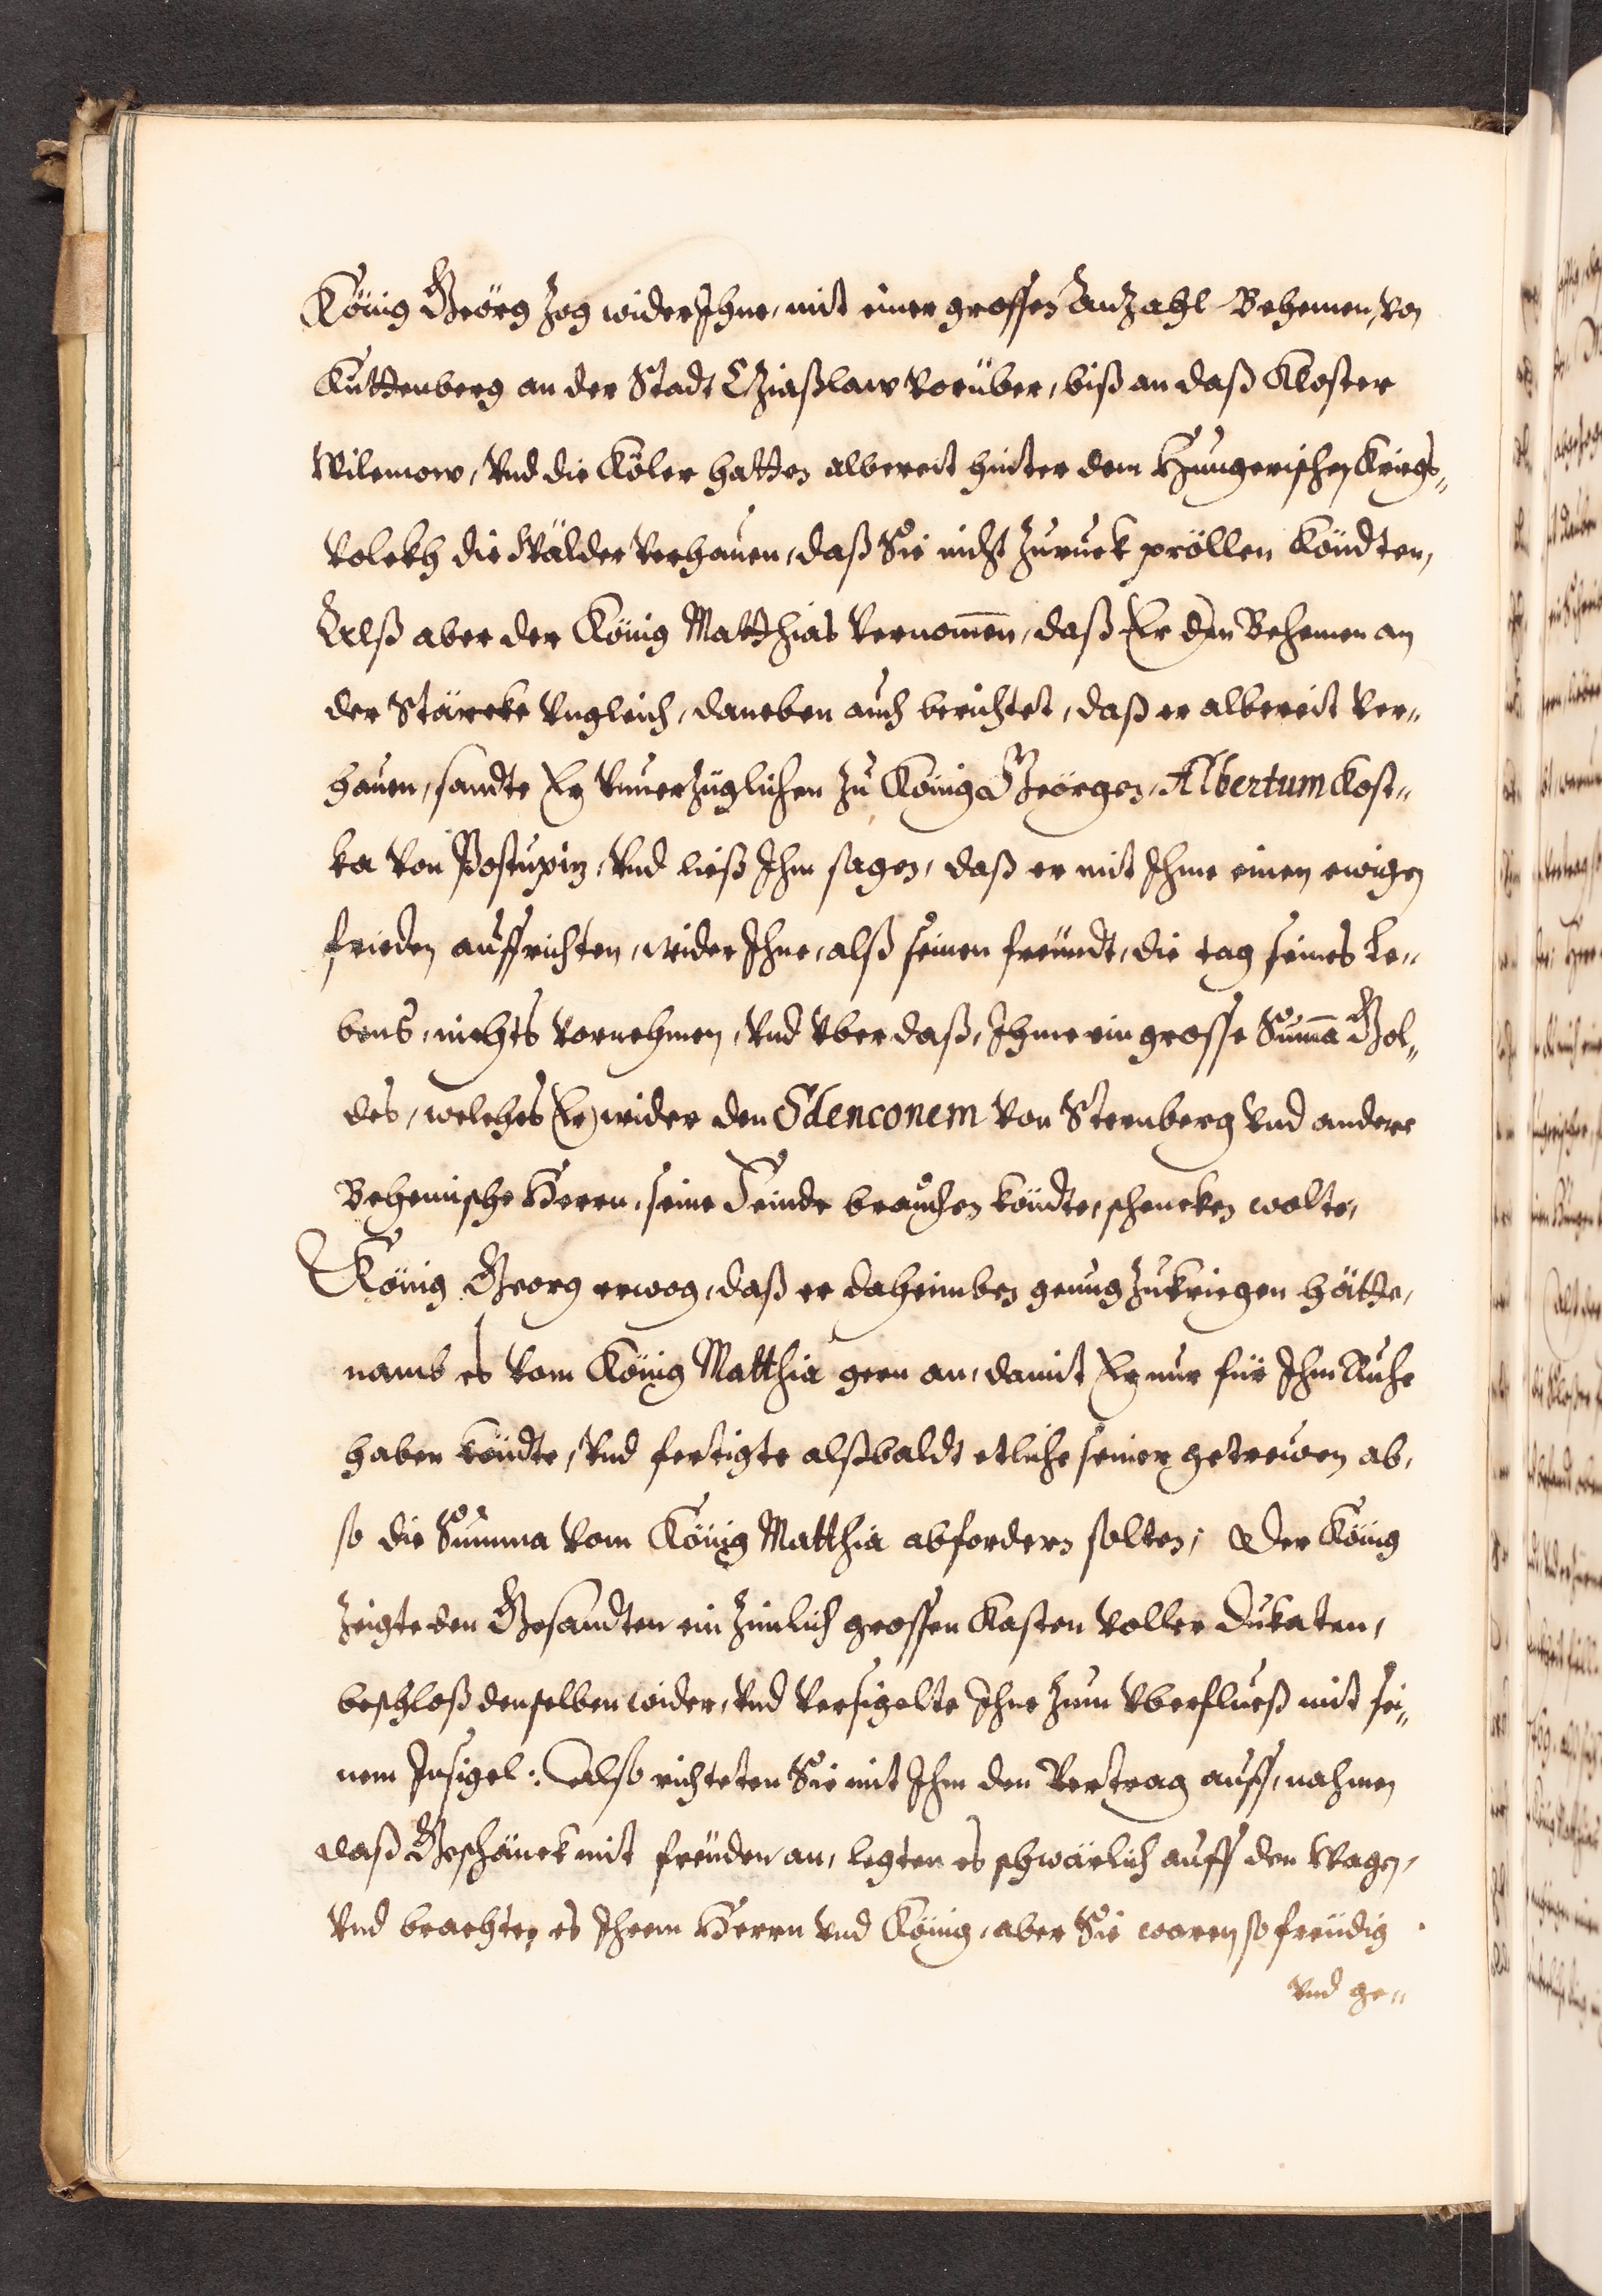 König Geörg zog wider Ihne, mit einer grossen Anzahl Behemen, von
Kuttenberg an der Stadt Cziaßlaw vorüber, biß an daß Kloster
Wilemow, vnd die Köler hatten albereit hinter dem Hungerischen Kriegs„
volckh die Wälder verhauen, daß Sie nicht zuruck pröllen köndten,
Alß aber der König Matthias vernom̄en, daß Er den Behemen an
der Stärcke vngleich, daneben auch berichtet, daß er albereit ver„
hauen, sandte Er vnuerzüglichen zu König Geörgen, Albertum Kost„
ka von Postupitz, vnd ließ Ihm sagen, daß er mit Ihme einen ewigen
frieden auffrichten, wider Ihne, alß seinen freundt, die tag seines Le„
bens, nichts vornehmen, vnd vber daß, Ihme ein grosse Sum̄a Gol„
des, welches Er wider den Sdenconem von Sternberg vnd andere
Behemische Herrn, seine Feinde brauchen köndte, schencken wolte,
König Georg erwog, daß er daheimben genug zukriegen hätte,
namb es vom König Matthia gern an, damit Er nur für Ihm Ruhe
haben köndte, vnd fertigte alßbaldt etliche seiner getrewen ab,
so die Summa vom König Matthia abfordern solten; Der König
zeigte den Gesandten ein zimlich grossen Kasten voller Dukaten,
beschloß denselben wider, vnd versigelte Ihne zum vberfluß mit sei„
nem Insigel: Also richteten Sie mit Ihm den Vertrag auff, nahmen
daß Geschänck mit freuden an, legten es schwärlich auff den Wagen,
vnd brachten es Ihrem Herrn vnd König, aber Sie waren so freudig
vnd ge„